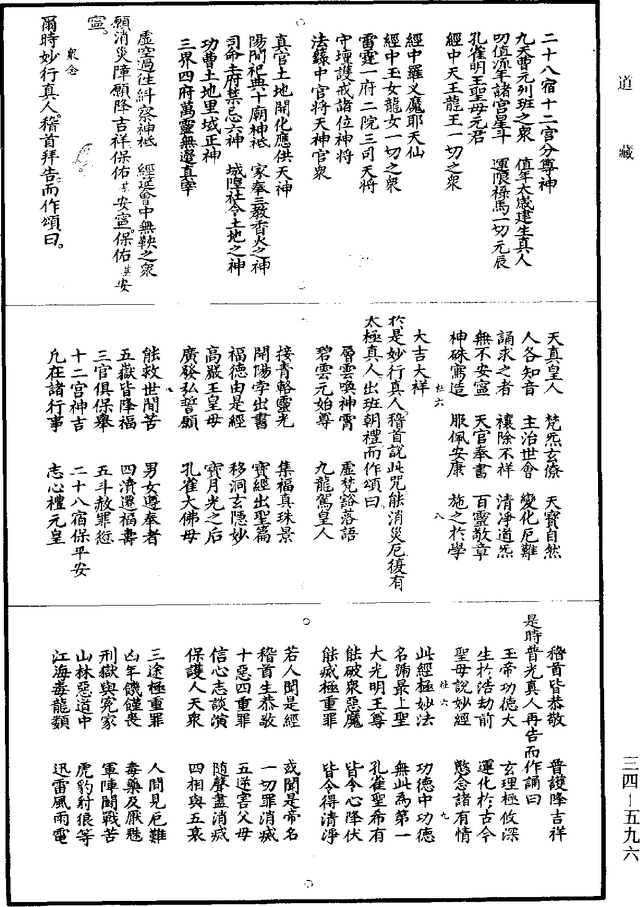 道藏
二十八宿十二宮分尊神
九天曹元列班之衆　值年太歲建生真人
叨值流年諸宮星斗　運限祿馬一切元辰
孔雀明王聖母元君
經中天王龍王一切之衆
經中羅乂魔耶天仙
經中玉女龍女一切之衆
雷霆一府二院三司天將
守壇護戒諸位神將
法籙中官將天神官衆
真官土地開化應供天神
陽間祀典十廟神祗　家奉三教香火之神
司命土府禁忌六神　城隍社令土地之神
功曹土地里域正神
三界四府萬靈無邊真宰
虛空過往糾察神祗　經筵會中無鞅之衆
願消災障願降吉祥保佑某安寧。保佑某安
寧。
衆念
爾時妙行真人。稽首拜告。而作頌曰。
天真皇人　梵炁玄僚　天寶自然
人各知音　主治世會　變化厄難
誦求之者　禳除不祥　清凈道炁
無不安寧　天官奉書　百靈敬章
神硃寫造　服佩安康　施之於學
杜六　八
大吉大祥
於是妙行真人。稽首說此咒能消災厄復有
太極真人。出班朝禮。而作頌曰
層雲喚神霄　虛梵谽落語
碧雲元始尊　九龍駕皇人
接青輅靈光　集福真珠景
開陽孛出書　寶經出聖篇
福德由是經　移洞玄隱妙
高嚴王皇母　寶月光之后
廣發弘誓願　孔雀大佛母
能救世間苦　男女遵奉者
五嶽皆降福　四瀆還福壽
三官俱保舉　五斗赦罪愆
十二宮神吉　二十八宿保平安
凡在諸行事　志心禮元皇
稽首皆恭敬　普護降吉祥
是時普光真人再告而作誦曰
玉帝功德大　玄理極攸深
生於浩劫前　運化於古今
聖母說妙經　愍念諸有情
杜六　九
此經極妙法　功德中功德
名號最上聖　無此為第一
大光明王尊　孔雀聖希有
能破衆惡魔　皆令心降伏
能滅極重罪　皆令得清淨
若人聞是經　或聞是帝名
稽首生恭敬　一切罪消滅
十惡四重罪　五逆害父母
信心志談演　隨聲盡消滅
保護人天衆　四相與五衰
三途極重罪　人間見厄難
凶年饑饉喪　毒藥及厭魅
刑獄與冤家　軍陣鬭戰苦
山林惡道中　虎豹豺狼等
江海毒龍類　迅雷風雨電
三四—五九六